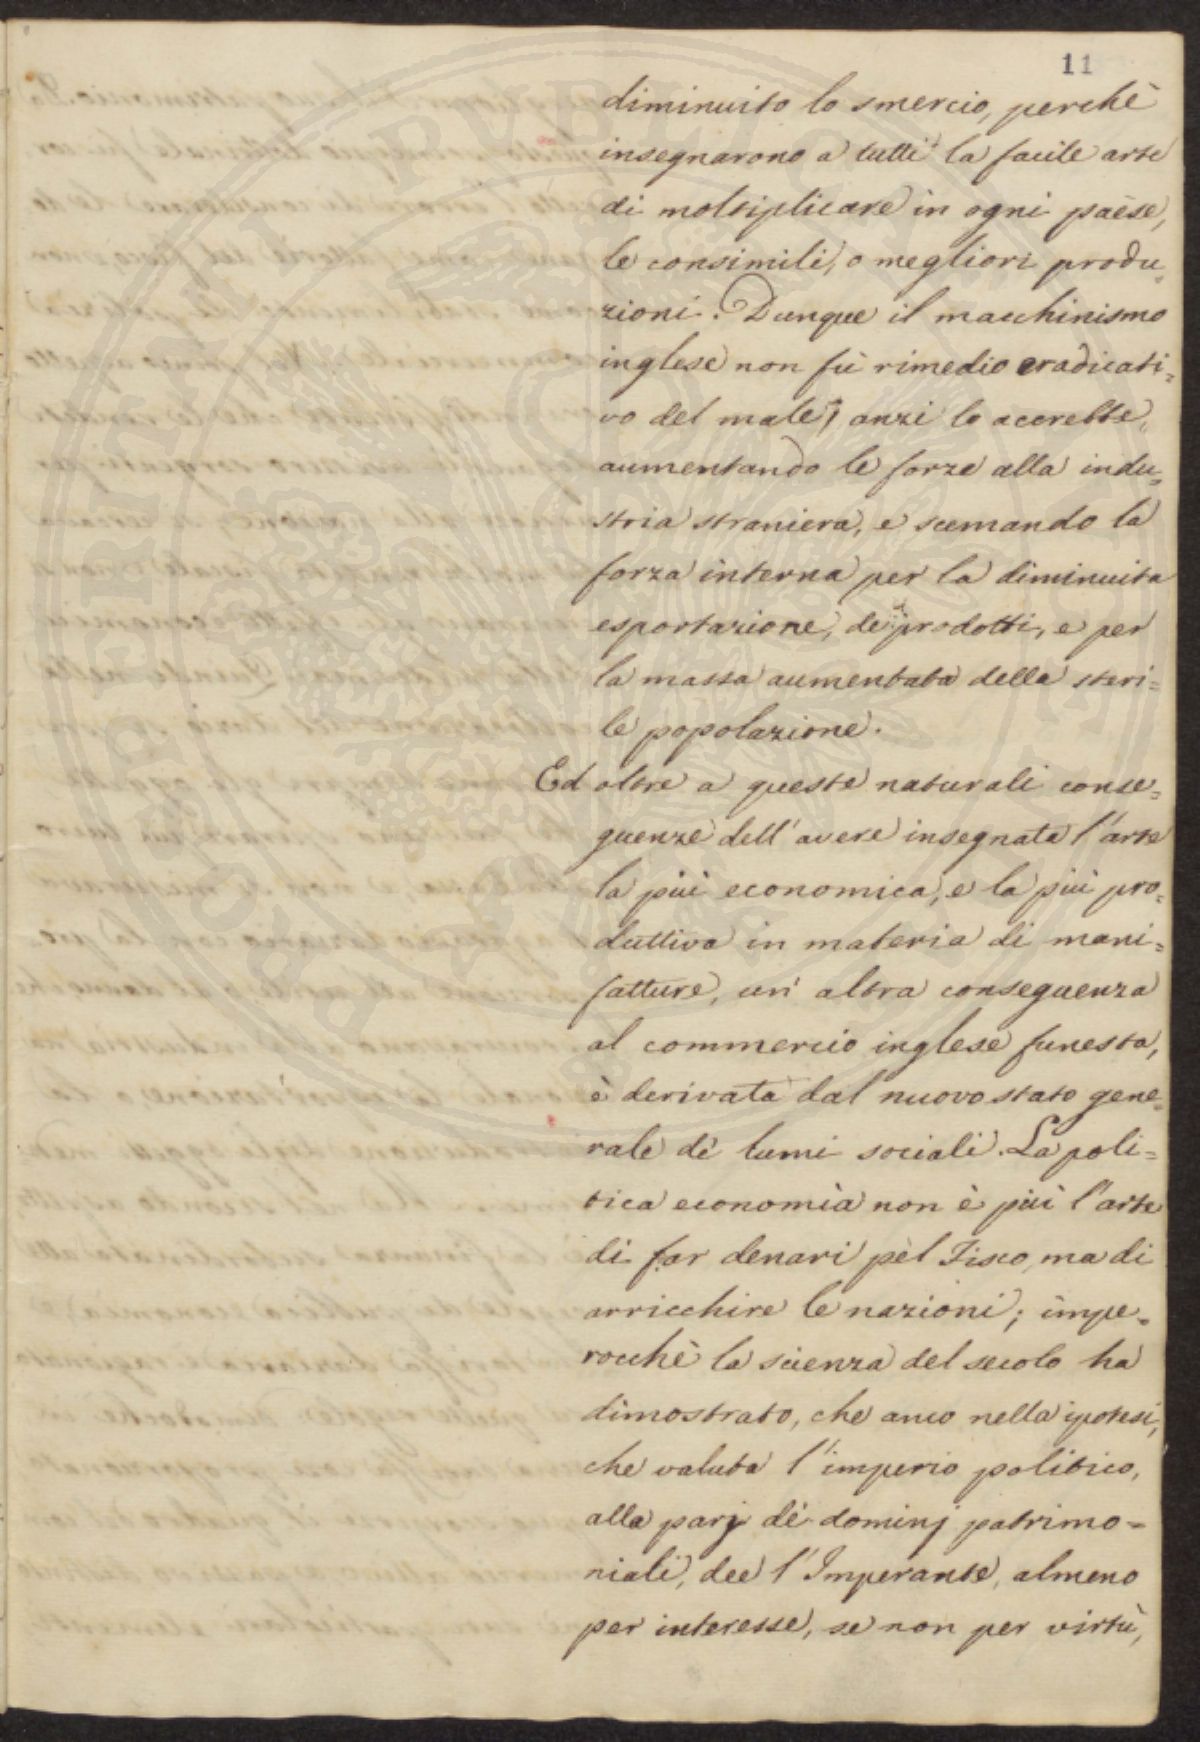 11
diminuito lo smercio, perchè
insegnarono a tutti la facile arte
di moltiplicare in ogni paese,
le consimili, o megliori produ=
zioni. Dunque il macchinismo
inglese non fù rimedio eradicati=
vo del male, anzi lo accrebbe,
aumentando le forze alla indu=
stria straniera, e scemando la
forza interna per la diminuita
esportazione, dei prodotti, e per
la massa aumentata della steri=
le popolazione.
Ed oltre a queste naturali conse=
guenze dell'avere insegnata l'arte
la più economica, e la più pro=
duttiva in materia di mani=
fatture, un'altra conseguenza
al commercio inglese funesta,
è derivata dal nuovo stato gene=
rale dè lumi sociali. La poli=
tica economia non è più l'arte
di far denari pel Fisco, ma di
arricchire le nazioni; impe=
rocchè la scienza del secolo ha
dimostrato, che anco nella ipotesi,
che valuta l'imperio politico,
alla parj dè dominj patrimo=
niali, dee l'Imperante, almeno
per interesse, se non per virtù,